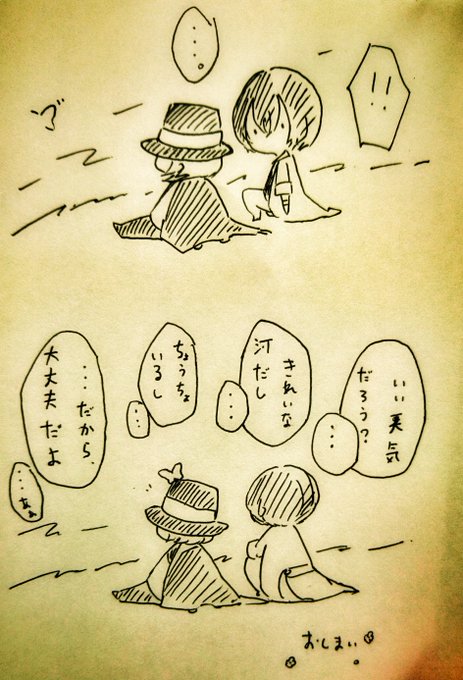 !!
…。
いい天気
だろう?
…
きれいな
河だし
…
ちょうちょ
いるし
…
…だから、
大丈夫だよ
…ああ
おしまい